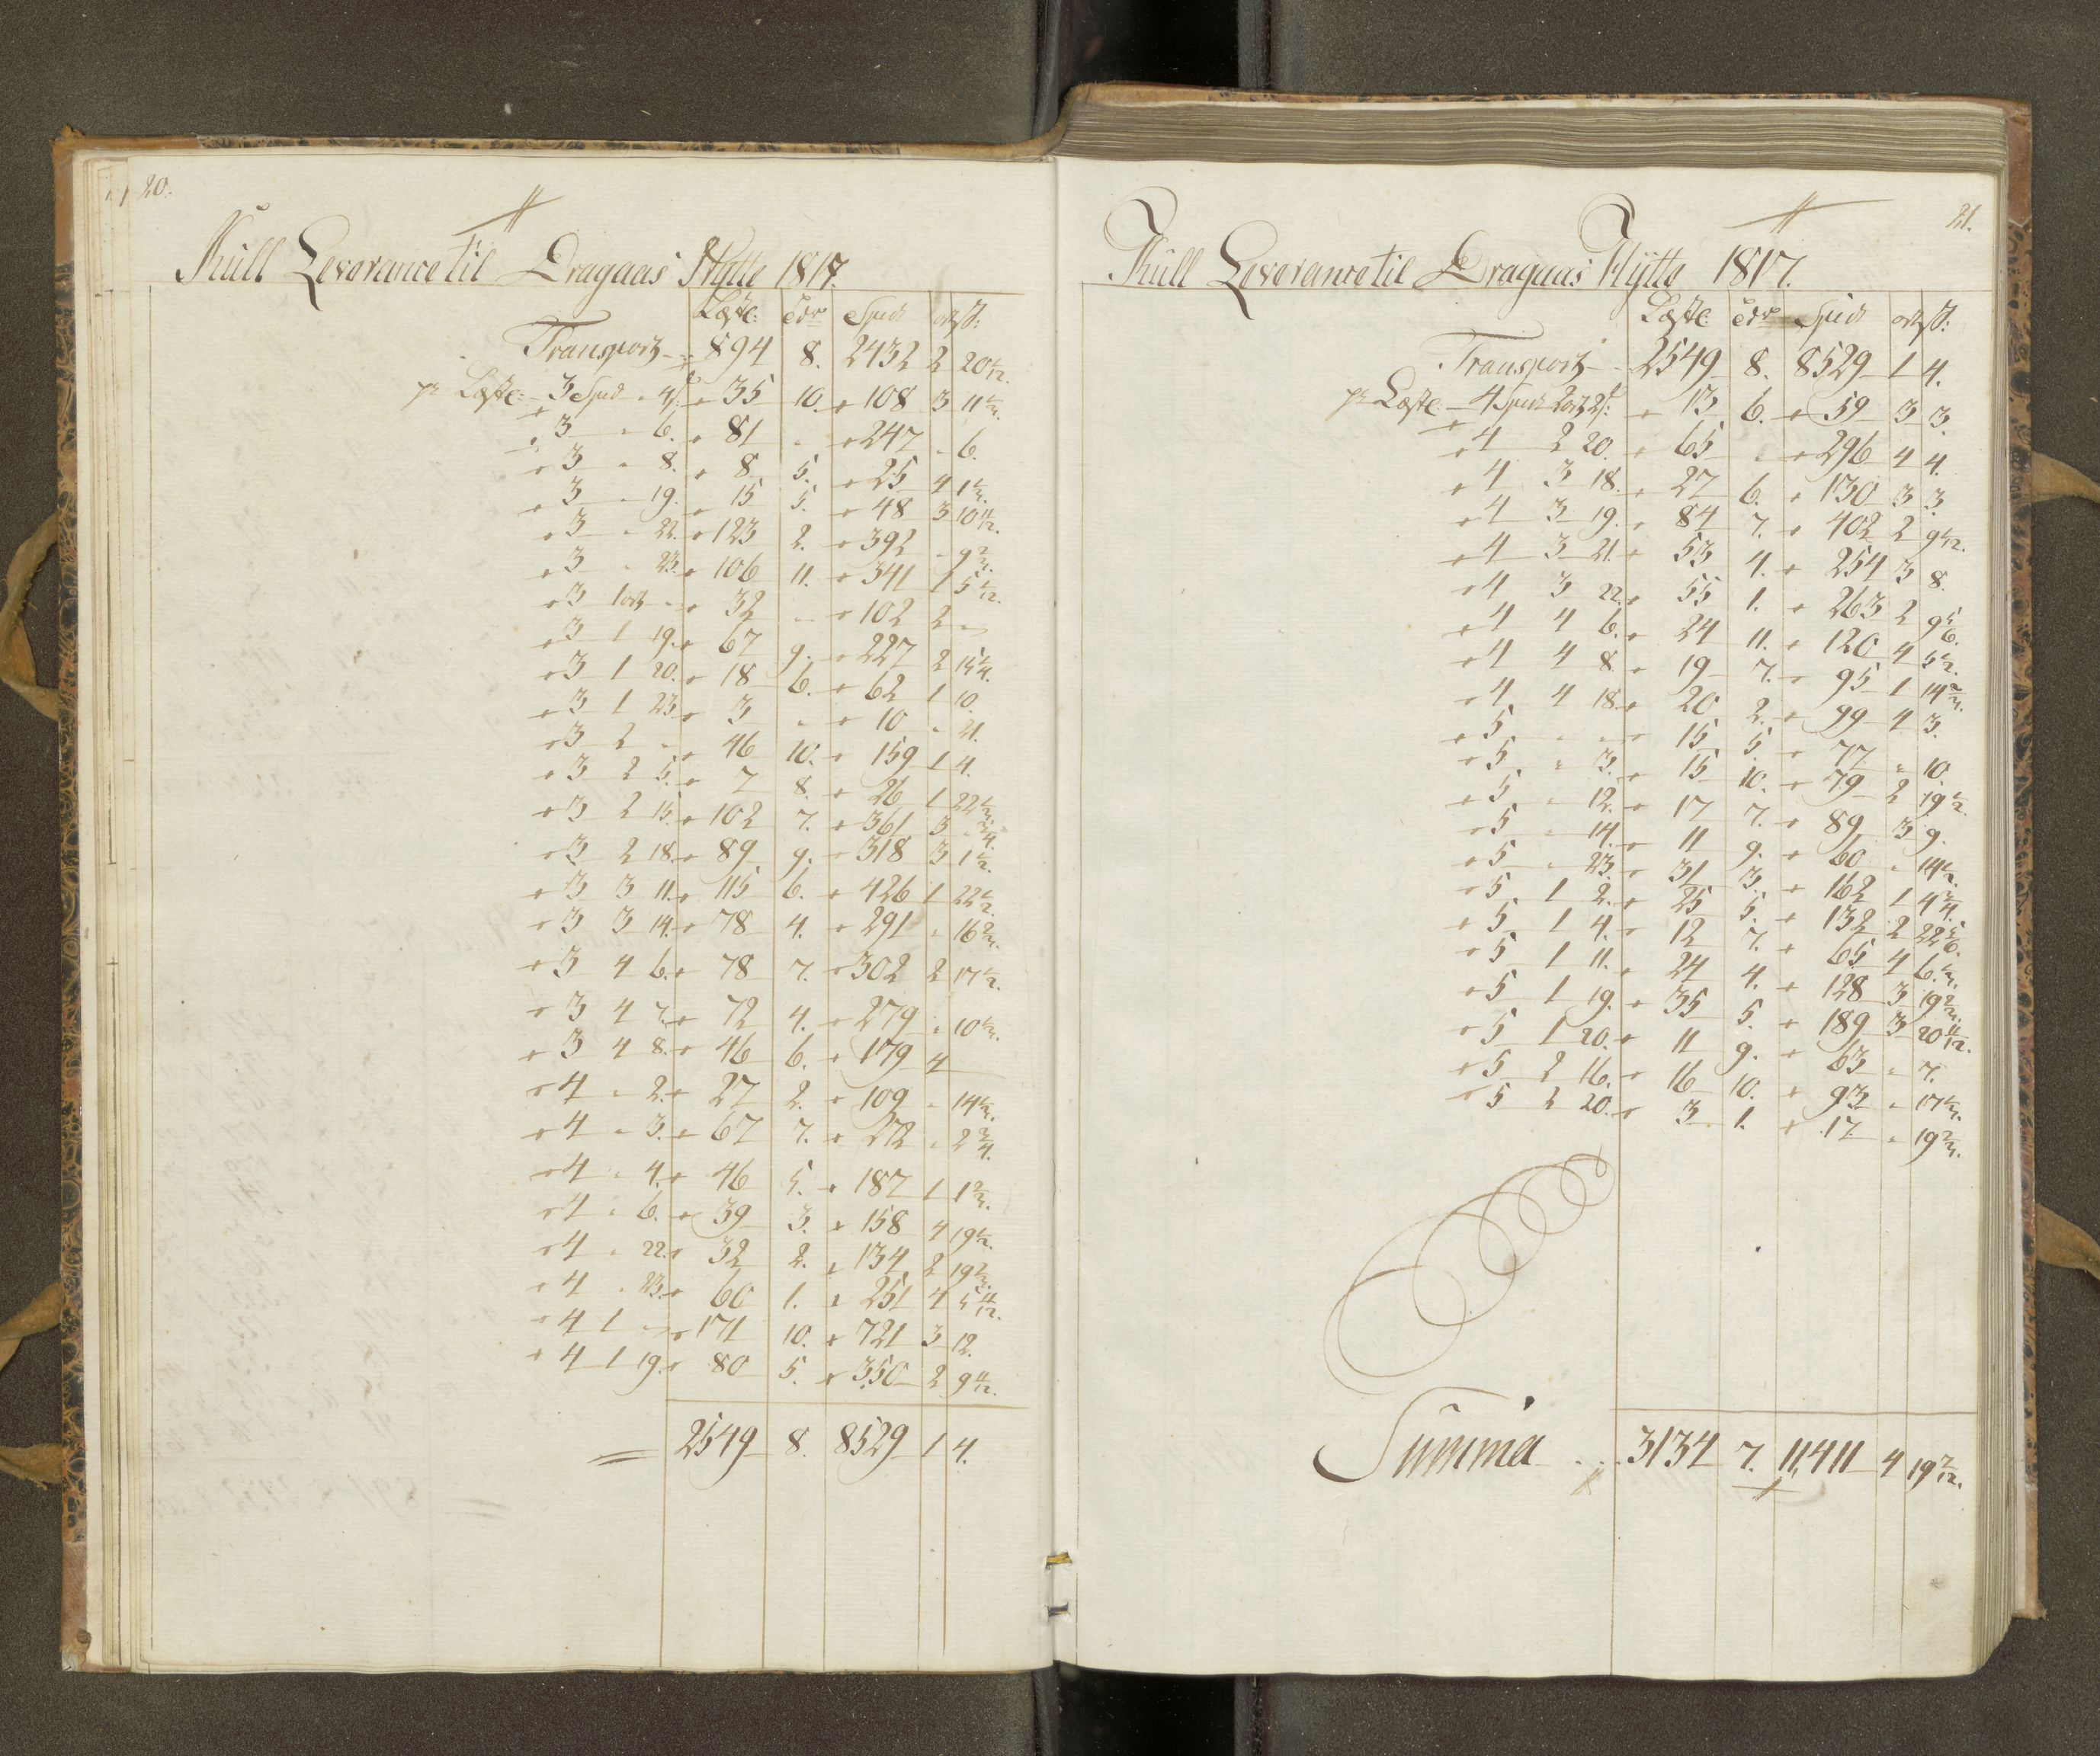 20.
Kull Leverance til Dragaas Hytte 1817.
Læster Tdr Spd ort ß:
Transport 894 8. 2432 2 20 1/12.
pr Læster 3 Spd " 4ß " 35 10. " 108 3 11 1/3.
" 3 " 6. " 81 " " 247 " 6.
" 3 " 8. " 8 5. " 25 4 1 1/3.
" 3 " 19. " 15 5. " 48 3 10 11/12.
" 3 " 22. " 123 2. " 392 " 9 2/3.
" 3 " 23. " 106 11. " 341 1 5 1/12.
" 3 1ort " " 32 " " 102 2 "
" 3 1 19. " 67 9. " 227 2 15 1/4.
" 3 1 20. " 18 6. " 62 1 10.
" 3 1 23. " 3 " " 10 " 21.
" 3 2 " " 46 10. " 159 1 4.
" 3 2 5. " 7 8. " 26 1 22 1/3.
" 3 2 15. " 102 7. " 361 3 " 3/4.
" 3 2 18. " 89 9. " 318 3 1 1/2.
" 3 3 11. " 115 6. " 426 1 22 1/2.
" 3 3 14. " 78 4. " 291 " 16 2/3.
" 3 4 6. " 78 7. " 302 2 17 1/2.
" 3 4 7. " 72 4. " 279 " 10 1/3.
" 3 4 8. " 46 6. " 179 4
" 4 " 2. " 27 2. " 109 " 14 1/3.
" 4 " 3. " 67 7. " 272 " 2 3/4.
" 4 " 4. " 46 5. " 187 1 1 2/3.
" 4 " 6. " 39 3. " 158 4 19 1/2.
" 4 " 22. " 32 2. " 134 2 19 2/3.
" 4 " 23. " 60 1. " 251 4 5 11/12.
" 4 1 " " 171 10. " 721 3 12.
" 4 1 19. " 80 5. " 350 2 9 11/12.
2549 8. 8529 1 4.
21.
Kull Leverance til Dragaas Hytte 1817.
Læster Tdr Spd ort ß:
Transport 2549 8. 8529 1 4.
pr Læster 4 Spd 2ort 2ß: " 13 6. " 59 3 3.
" 4 2 20. " 65 " " 296 4 4.
" 4 3 18. " 27 6. " 130 3 3.
" 4 3 19. " 84 7. " 402 2 9 1/12.
" 4 3 21. " 53 4. " 254 3 8.
" 4 3 22. " 55 1. " 263 2 9 5/6.
" 4 4 6. " 24 11. " 120 4 5 1/2.
" 4 4 8 " 19 7. " 95 1 14 2/3.
" 4 4 18. " 20 2. " 99 4 3.
" 5 " " " 15 5 " 77 " 10.
" 5 " 3. " 15 10. " 79 2 19 1/2.
" 5 " 12. " 17 7. " 89 3 9.
" 5 " 14. " 11 9. " 60 " 14 1/2.
" 5 " 23. " 31 3. " 162 1 4 3/4.
" 5 1 2. " 25 5. " 132 2 22 5/6.
" 5 1 4. " 12 7. " 65 4 6 1/3.
" 5 1 11. " 24 4. " 128 3 19 2/3.
" 5 1 19. " 35 5. " 189 3 20 11/12.
" 5 1 20. " 11 9. " 63 " 7.
" 5 2 16. " 16 10. " 93 " 17 1/3.
" 5 2 20. " 3 1. " 17 " 19 2/3.
Summa 3134 7. 11,411 4 19 7/12.